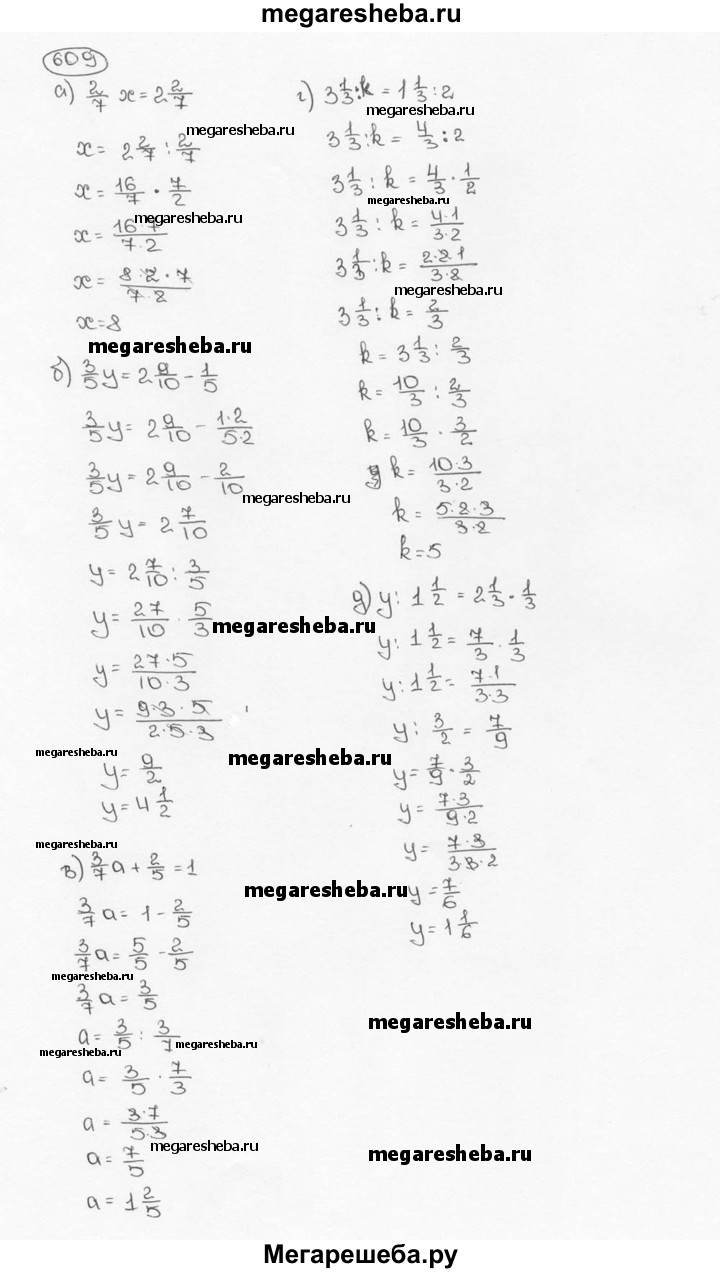 megaresheba.ru
609
а) 2/7 x = 2 2/7
megaresheba.ru
x = 2 2/7 : 2/7
x = 16/7 · 7/2
megaresheba.ru
x = 16·7/7·2
x = 8·2·7/7·2
x = 8
megaresheba.ru
б) 3/5 y = 2 9/10 - 1/5
3/5 y = 2 9/10 - 1·2/5·2
3/5 y = 2 9/10 - 2/10
megaresheba.ru
3/5 y = 2 7/10
y = 2 7/10 : 3/5
y = 27/10 · 5/3
megaresheba.ru
y = 27·5/10·3
y = 9·3·5/2·5·3
megaresheba.ru
y = 9/2
y = 4 1/2
megaresheba.ru
в) 3/7 a + 2/5 = 1
3/7 a = 1 - 2/5
3/7 a = 5/5 - 2/5
megaresheba.ru
3/7 a = 3/5
a = 3/5 : 3/7
megaresheba.ru
megaresheba.ru
a = 3/5 · 7/3
a = 3·7/5·3
megaresheba.ru
a = 7/5
a = 1 2/5
г) 3 1/3 : k = 1 1/3 : 2
megaresheba.ru
3 1/3 : k = 4/3 : 2
3 1/3 : k = 4/3 · 1/2
megaresheba.ru
3 1/3 : k = 4·1/3·2
3 1/3 : k = 2·2·1/3·2
megaresheba.ru
3 1/3 : k = 2/3
k = 3 1/3 : 2/3
k = 10/3 : 2/3
k = 10/3 · 3/2
k = 10·3/3·2
k = 5·2·3/3·2
k = 5
д) y : 1 1/2 = 2 1/3 · 1/3
y : 1 1/2 = 7/3 · 1/3
y : 1 1/2 = 7·1/3·3
y : 3/2 = 7/9
megaresheba.ru
y = 7/9 · 3/2
y = 7·3/9·2
y = 7·3/3·3·2
megaresheba.ru
y = 7/6
y = 1 1/6
megaresheba.ru
megaresheba.ru
Мегарешеба.ру